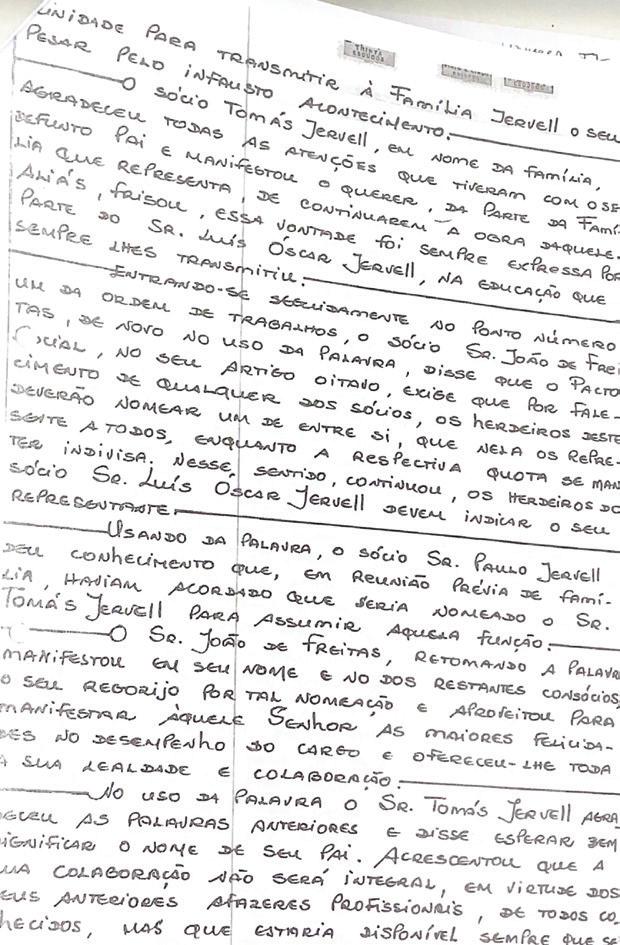 TRINTA
ESCUDOS
UNIDADE PARA TRANSMITIR À FAMÍLIA JERVELL O SEU
PESAR PELO INFAUSTO ACONTECIMENTO.
O SÓCIO TOMÁS JERVELL, EM NOME DA FAMÍLIA,
AGRADECEU TODAS AS ATENÇÕES QUE TIVERAM COM O SE
DEFUNTO PAI E MANIFESTOU O QUERER, DA PARTE DA FAMÍ
LIA QUE REPRESENTA, DE CONTINUAREM A OBRA DAQUELE.
ALIÁS, FRISOU, ESSA VONTADE FOI SEMPRE EXPRESSA POR
PARTE DO SR. LUÍS ÓSCAR JERVELL, NA EDUCAÇÃO QUE
SEMPRE LHES TRANSMITIU.
ENTRANDO-SE SEGUIDAMENTE NO PONTO NÚMERO
UM DA ORDEM DE TRABALHOS, O SÓCIO SR. JOÃO DE FREI
TAS, DE NOVO NO USO DA PALAVRA, DISSE QUE O PACTO
OCIAL, NO SEU ARTIGO OITAVO, EXIGE QUE POR FALE-
CIMENTO DE QUALQUER DOS SÓCIOS, OS HERDEIROS DESTE
DEVERÃO NOMEAR UM DE ENTRE SI, QUE NELA OS REPRE-
SENTE A TODOS, ENQUANTO A RESPECTIVA QUOTA SE MAN
TER INDIVISA. NESSE SENTIDO, CONTINUOU, OS HERDEIROS DO
SÓCIO SR. LUÍS ÓSCAR JERVELL DEVEM INDICAR O SEU
REPRESENTANTE.
USANDO DA PALAVRA, O SÓCIO SR. PAULO JERVELL
DEU CONHECIMENTO QUE, EM REUNIÃO PRÉVIA DE FAMÍ-
LIA, HAVIAM ACORDADO QUE SERIA NOMEADO O SR.
TOMÁS JERVELL PARA ASSUMIR AQUELA FUNÇÃO.
O SR. JOÃO DE FREITAS, RETOMANDO A PALAVRA
MANIFESTOU EM SEU NOME E NO DOS RESTANTES CONSÓCIOS,
O SEU REGORIJO POR TAL NOMEAÇÃO E APROFEITOU PARA
MANIFESTAR ÀQUELE SENHOR AS MAIORES FELICIDA-
DES NO DESEMPENHO DO CARGO E OFERECEU-LHE TODA
A SUA LEALDADE E COLABORAÇÃO.
NO USO DA PALAVRA O SR. TOMÁS JERVELL AGRA
DECEU AS PALAVRAS ANTERIORES E DISSE ESPERAR BEM
IGNIFICAR O NOME DE SEU PAI. ACRESCENTOU QUE A
UA COLABORAÇÃO NÃO SERÁ INTEGRAL, EM VIRTUDE DOS
EUS ANTERIORES AFAZERES PROFISSIONAIS, DE TODOS CO
HECIDOS, MAS QUE ESTARIA DISPONÍVEL SEMPRE QUE SE